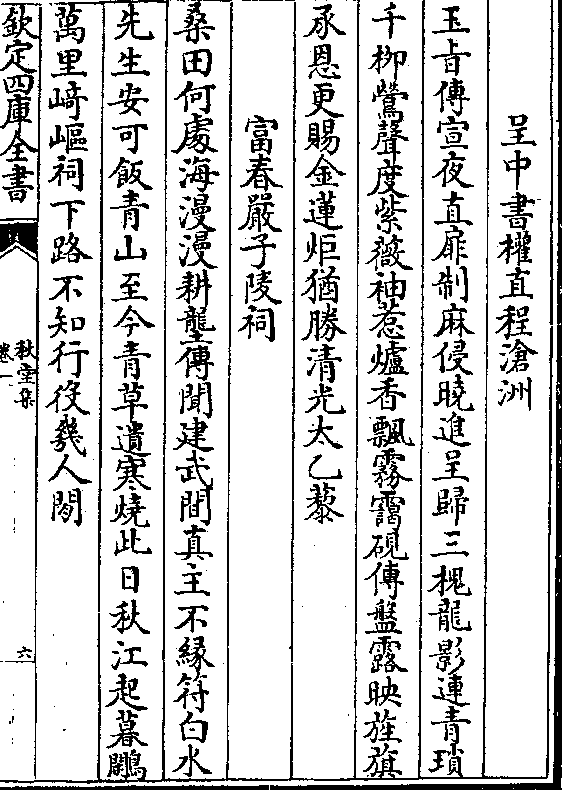 呈中書權直程滄洲
玉㫖傳宣夜直扉制麻侵曉進呈歸三槐龍影連青瑣
千柳鶯聲度紫薇袖惹爐香飄霧靄硯傳盤露映旌旗
承恩更賜金蓮炬猶勝清光太乙藜
富春嚴子陵祠
桑田何處海漫漫耕壟傳聞建武間真主不縁符白水
先生安可飯青山至今青草遺寒燒此日秋江起暮鷳
萬里﨑嶇祠下路不知行役幾人閒
欽定四庫全書
秋堂集
卷一
六